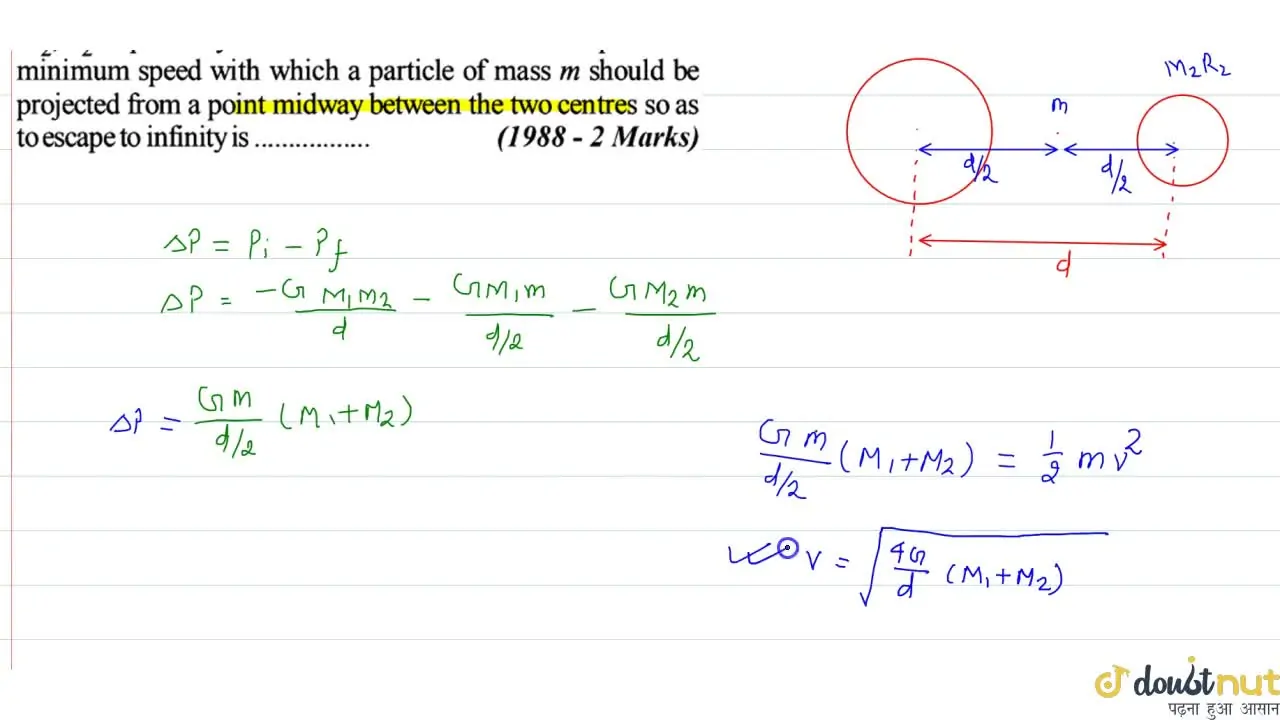 minimum speed with which a particle of mass m should be
projected from a point midway between the two centres so as
to escape to infinity is .................. (1988 - 2 Marks)
M2R2
m
d/2 d/2
d
ΔP = Pi - Pf
ΔP = -G M1M2/d - GM1m/d/2 - GM2m/d/2
ΔP = Gm/d/2 (M1+M2)
Gm/d/2 (M1+M2) = 1/2 mv²
v = √4G/d (M1+M2)
doubtnut
पढ़ना हुआ आसान